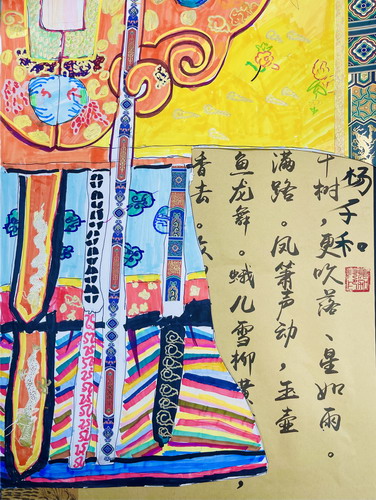 杨子和
千树,更吹落、星如雨。
满路。凤箫声动,玉壶
鱼龙舞。蛾儿雪柳
香去。